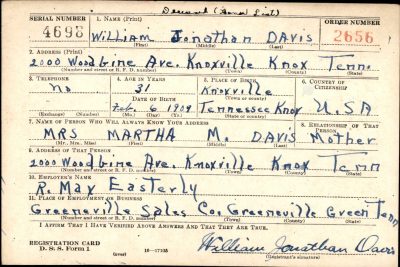 Deceased (
SERIAL NUMBER 1. NAME (Print) ORDER NUMBER
4698 William Jonathan DAVIS 2656
(First) (Middle) (Last)
2. ADDRESS (Print)
2000 Woodbine Ave. Knoxville Knox Tenn.
(Number and street or R. F. D. number) (Town) (County) (State)
3. TELEPHONE 4. AGE IN YEARS 5. PLACE OF BIRTH 6. COUNTRY OF CITIZENSHIP
No 31 Knoxville
DATE OF BIRTH (Town or county)
Feb. 6 1909 Tennessee Knox U.S.A
(Exchange) (Number) (Mo.) (Day) (Yr.) (State or country)
7. NAME OF PERSON WHO WILL ALWAYS KNOW YOUR ADDRESS 8. RELATIONSHIP OF THAT PERSON
MRS MARTHA M. DAVIS Mother
(Mr., Mrs., Miss) (First) (Middle) (Last)
9. ADDRESS OF THAT PERSON
2000 Woodbine Ave. Knoxville Knox Tenn
(Number and street or R. F. D. number) (Town) (County) (State)
10. EMPLOYER'S NAME
R. Max Easterly
11. PLACE OF EMPLOYMENT OR BUSINESS
Greeneville Sales Co. Greeneville Green Tenn
(Number and street or R. F. D. number) (Town) (County) (State)
I AFFIRM THAT I HAVE VERIFIED ABOVE ANSWERS AND THAT THEY ARE TRUE.
REGISTRATION CARD
D. S. S. Form 1
(over) 16—17105
William Jonathan Davis
(Registrant's signature)